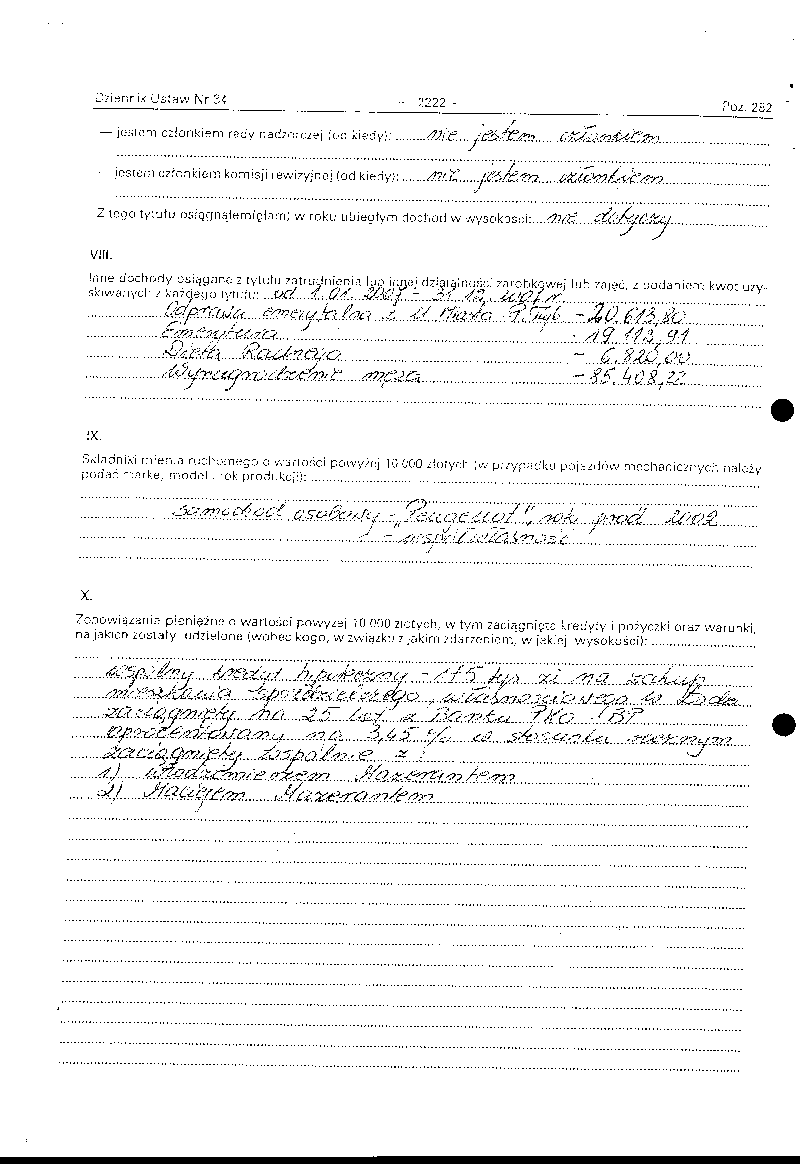 Dziennik Ustaw Nr 34 — 2222 — Poz. 282
— jestem członkiem rady nadzorczej (od kiedy): nie jestem członkiem
— jestem członkiem komisji rewizyjnej (od kiedy): nie jestem członkiem
Z tego tytułu osiągnąłem(ęłam) w roku ubiegłym dochód w wysokości: nie dotyczy
VIII.
Inne dochody osiągane z tytułu zatrudnienia lub innej działalności zarobkowej lub zajęć, z podaniem kwot uzy-
skiwanych z każdego tytułu: od 1.01.2007 - 31.12.2007 r.
Odprawa emerytalna z U Miasta P. Tryb - 20.613,80
Emerytura - 19.113,91
Dieta Radnego - 6.820,00
Wynagrodzenie męża - 85.408,22
IX.
Składniki mienia ruchomego o wartości powyżej 10 000 złotych (w przypadku pojazdów mechanicznych należy
podać markę, model i rok produkcji):
Samochód osobowy - „Peugeuot", rok prod 2002
- współwłasność
X.
Zobowiązania pieniężne o wartości powyżej 10 000 złotych, w tym zaciągnięte kredyty i pożyczki oraz warunki,
na jakich zostały udzielone (wobec kogo, w związku z jakim zdarzeniem, w jakiej wysokości):
wspólny kredyt hipoteczny - 175 tys zł na zakup
mieszkania spółdzielczego, własnościowego w Łodzi
zaciągnięty na 25 lat z Banku PKO BP
oprocentowany na 3,45 % w stosunku rocznym
zaciągnięty wspólnie z:
1) Włodzimierzem Mazerantem
2) Maciejem Mazerantem